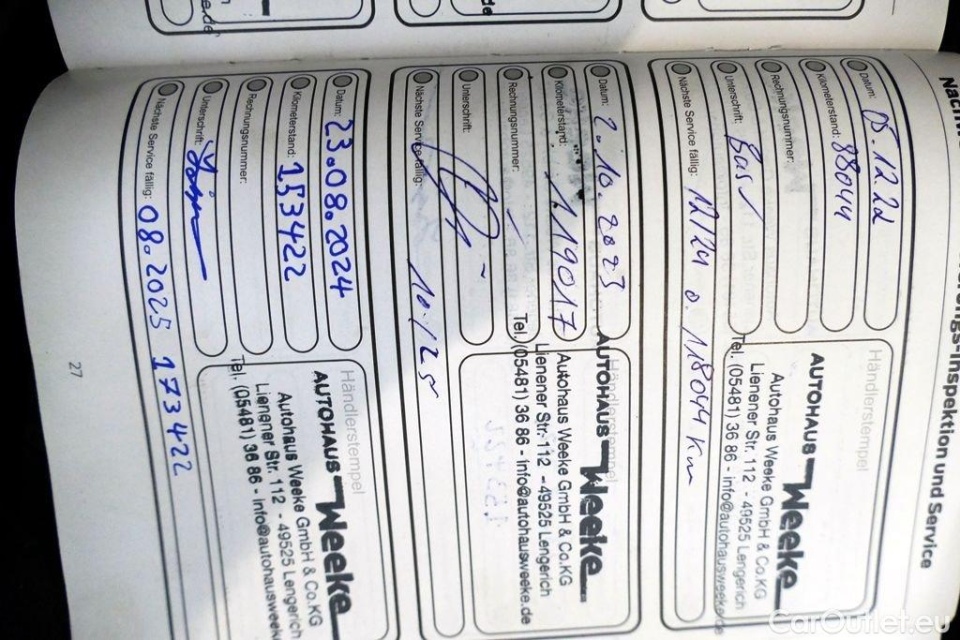 Händlerstempel
Datum: 05.12.22
Kilometerstand: 88044
Rechnungsnummer:
Unterschrift:
Nächste Service fällig: 12/24 o. 118044 km
AUTOHAUS Weeke
Autohaus Weeke GmbH & Co.KG
Lienener Str. 112 - 49525 Lengerich
Tel. (05481) 36 86 - info@autohausweeke.de
Händlerstempel
Datum: 2.10.2023
Kilometerstand: 119017
Rechnungsnummer:
Unterschrift:
Nächste Service fällig: 10/25
AUTOHAUS Weeke
Autohaus Weeke GmbH & Co.KG
Lienener Str. 112 - 49525 Lengerich
Tel. (05481) 36 86 - info@autohausweeke.de
Händlerstempel
Datum: 23.08.2024
Kilometerstand: 153422
Rechnungsnummer:
Unterschrift:
Nächste Service fällig: 08.2025 173422
AUTOHAUS Weeke
Autohaus Weeke GmbH & Co.KG
Lienener Str. 112 - 49525 Lengerich
Tel. (05481) 36 86 - info@autohauswee
27
CarOutlet.eu